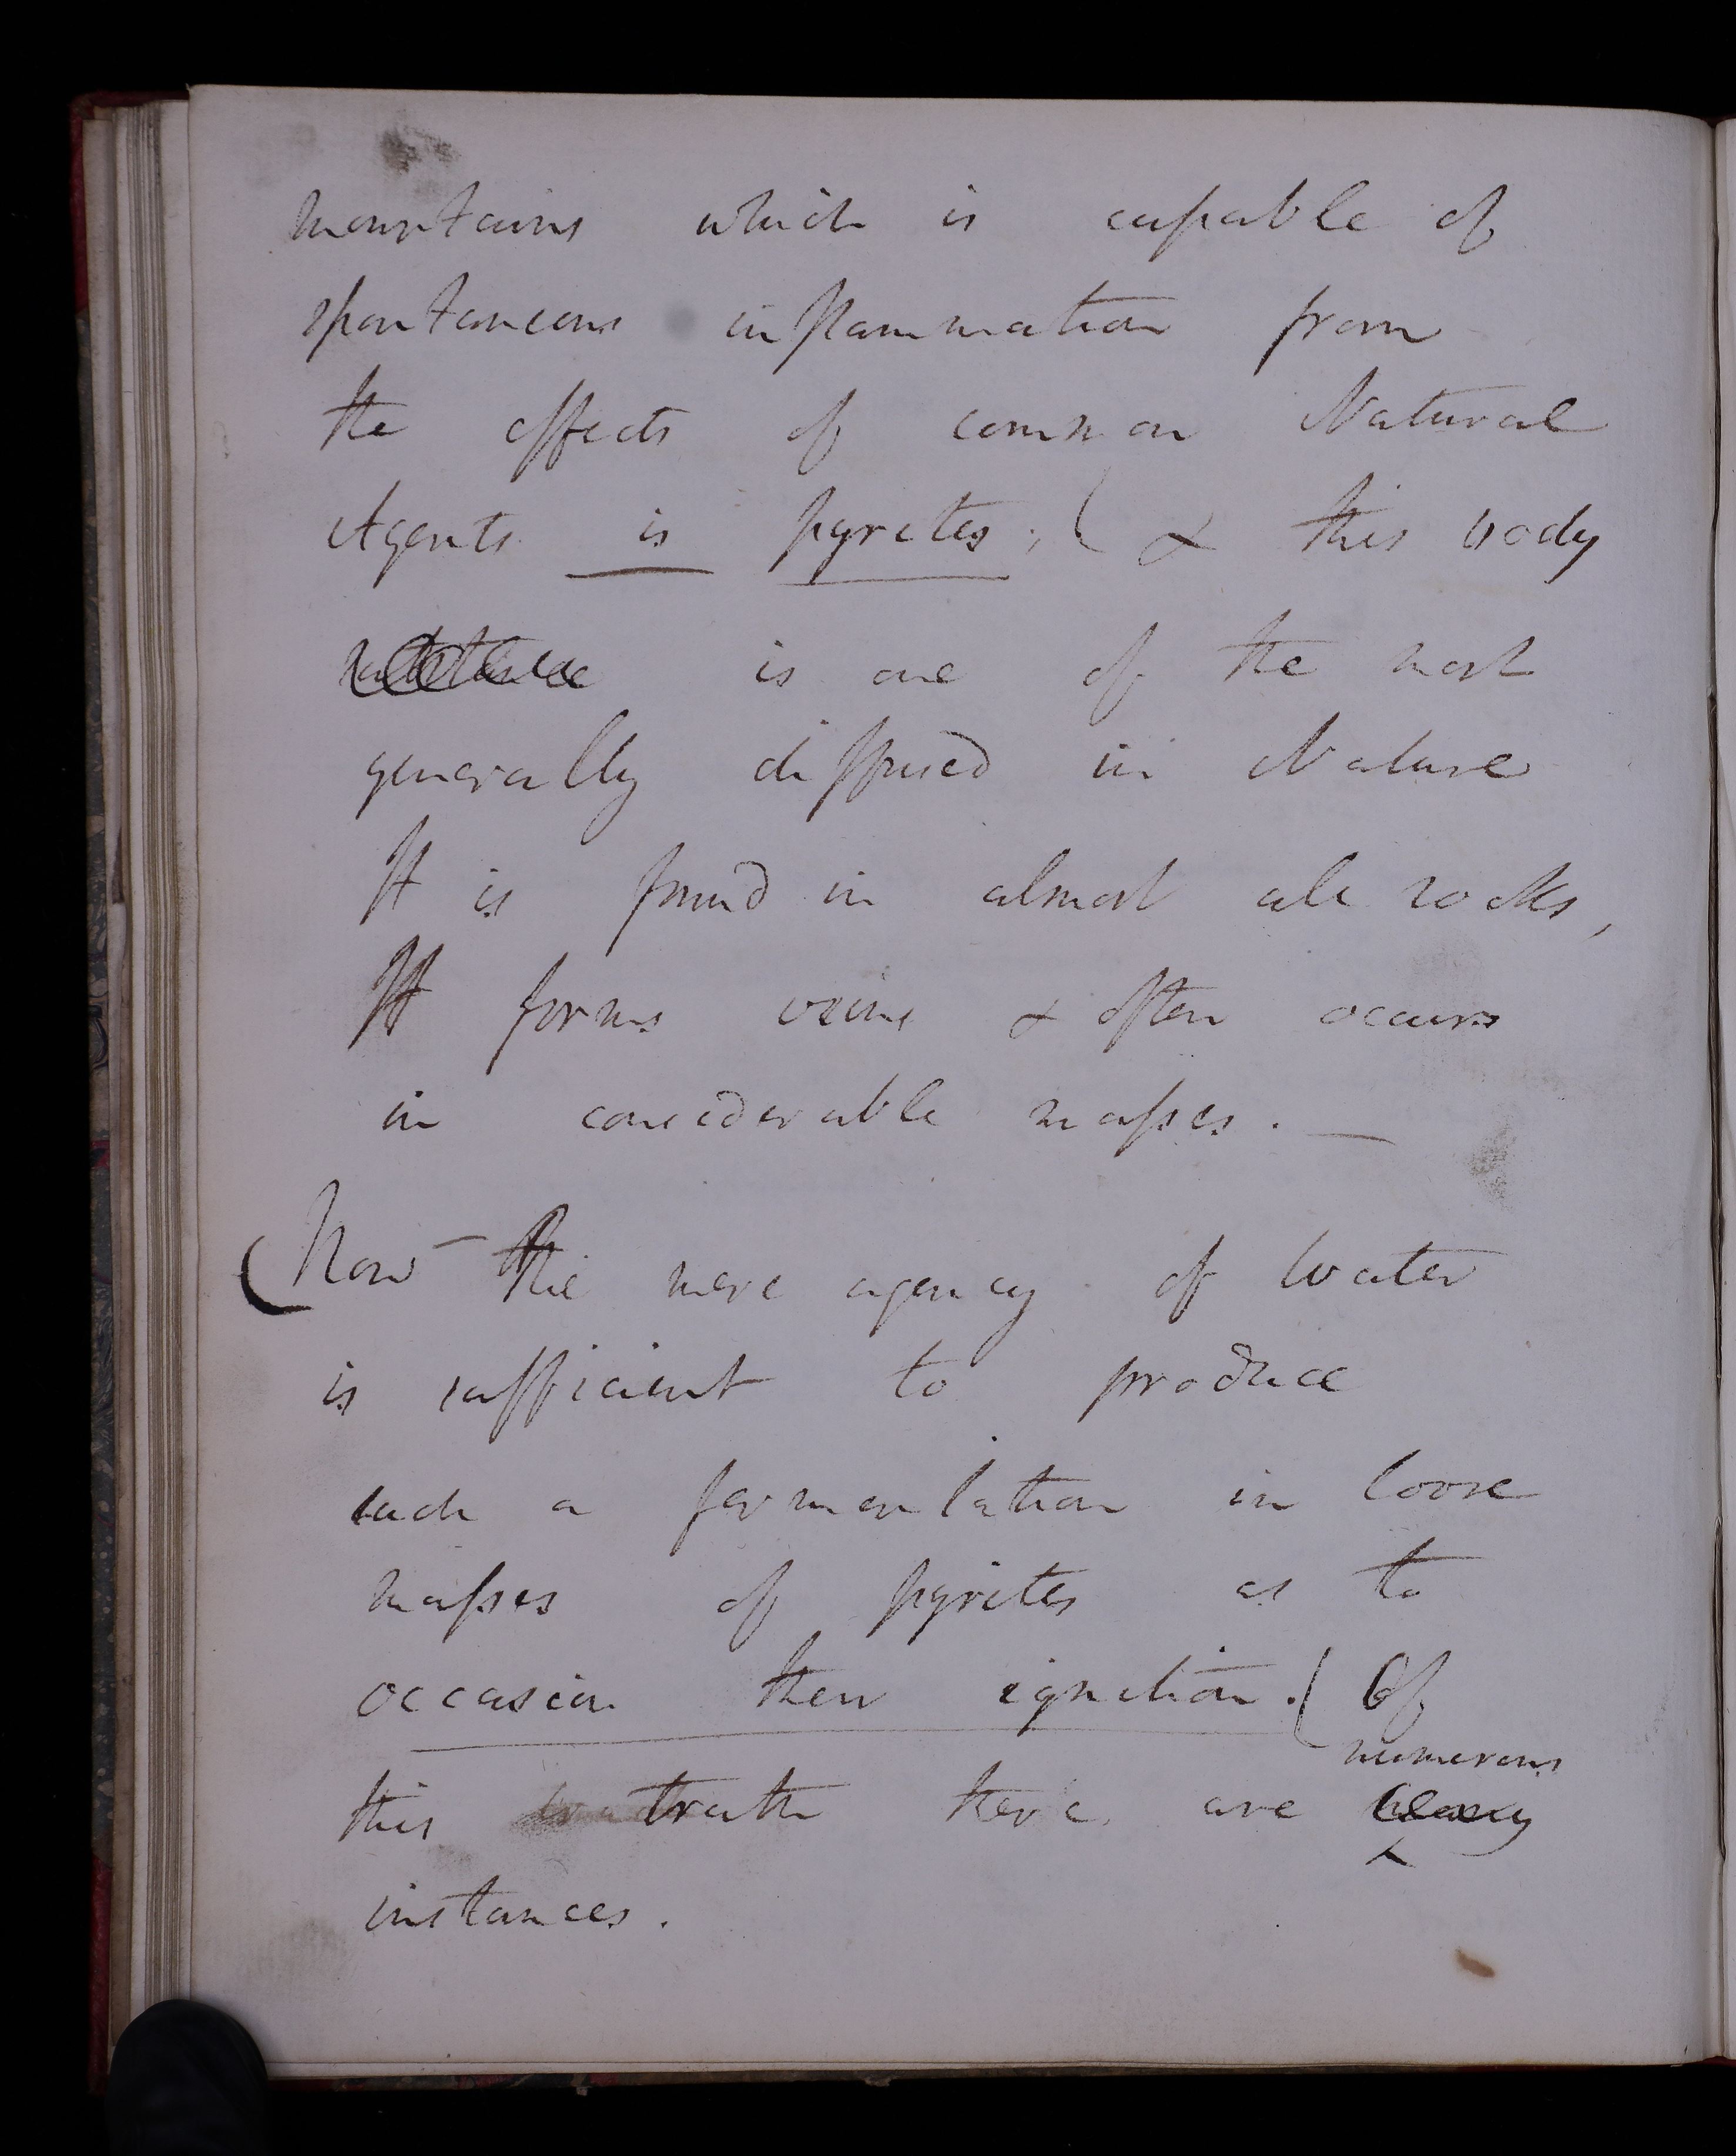 mountains which is capable of
spontaneous inflammation from
the effects of common Natural
Agents is pyrites; ( & this body
is one of the most
generally diffused in Nature
It is found in almost all rocks,
It forms veins & often occurs
in considerable masses. —
(Now - the mere agency of Water
is sufficient to produce
such a fermentation in loose
masses of pyrites as to
occasion their ignition. ( Of
numerous
this truth there are many
instances.